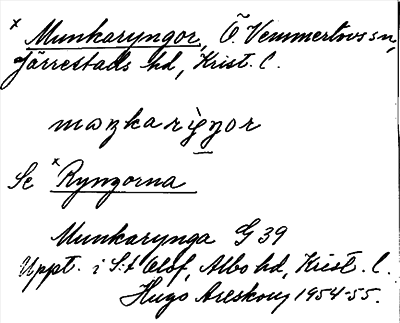 x Munkaryngor, Ö. Vemmerlövs sn,
Järrestads hd, Krist. l.
Se x Ryngorna
Munkarynga G 39
Uppt. i S:t Olof, Albo hd, Krist. l.
Hugo Areskoug 1954-55.